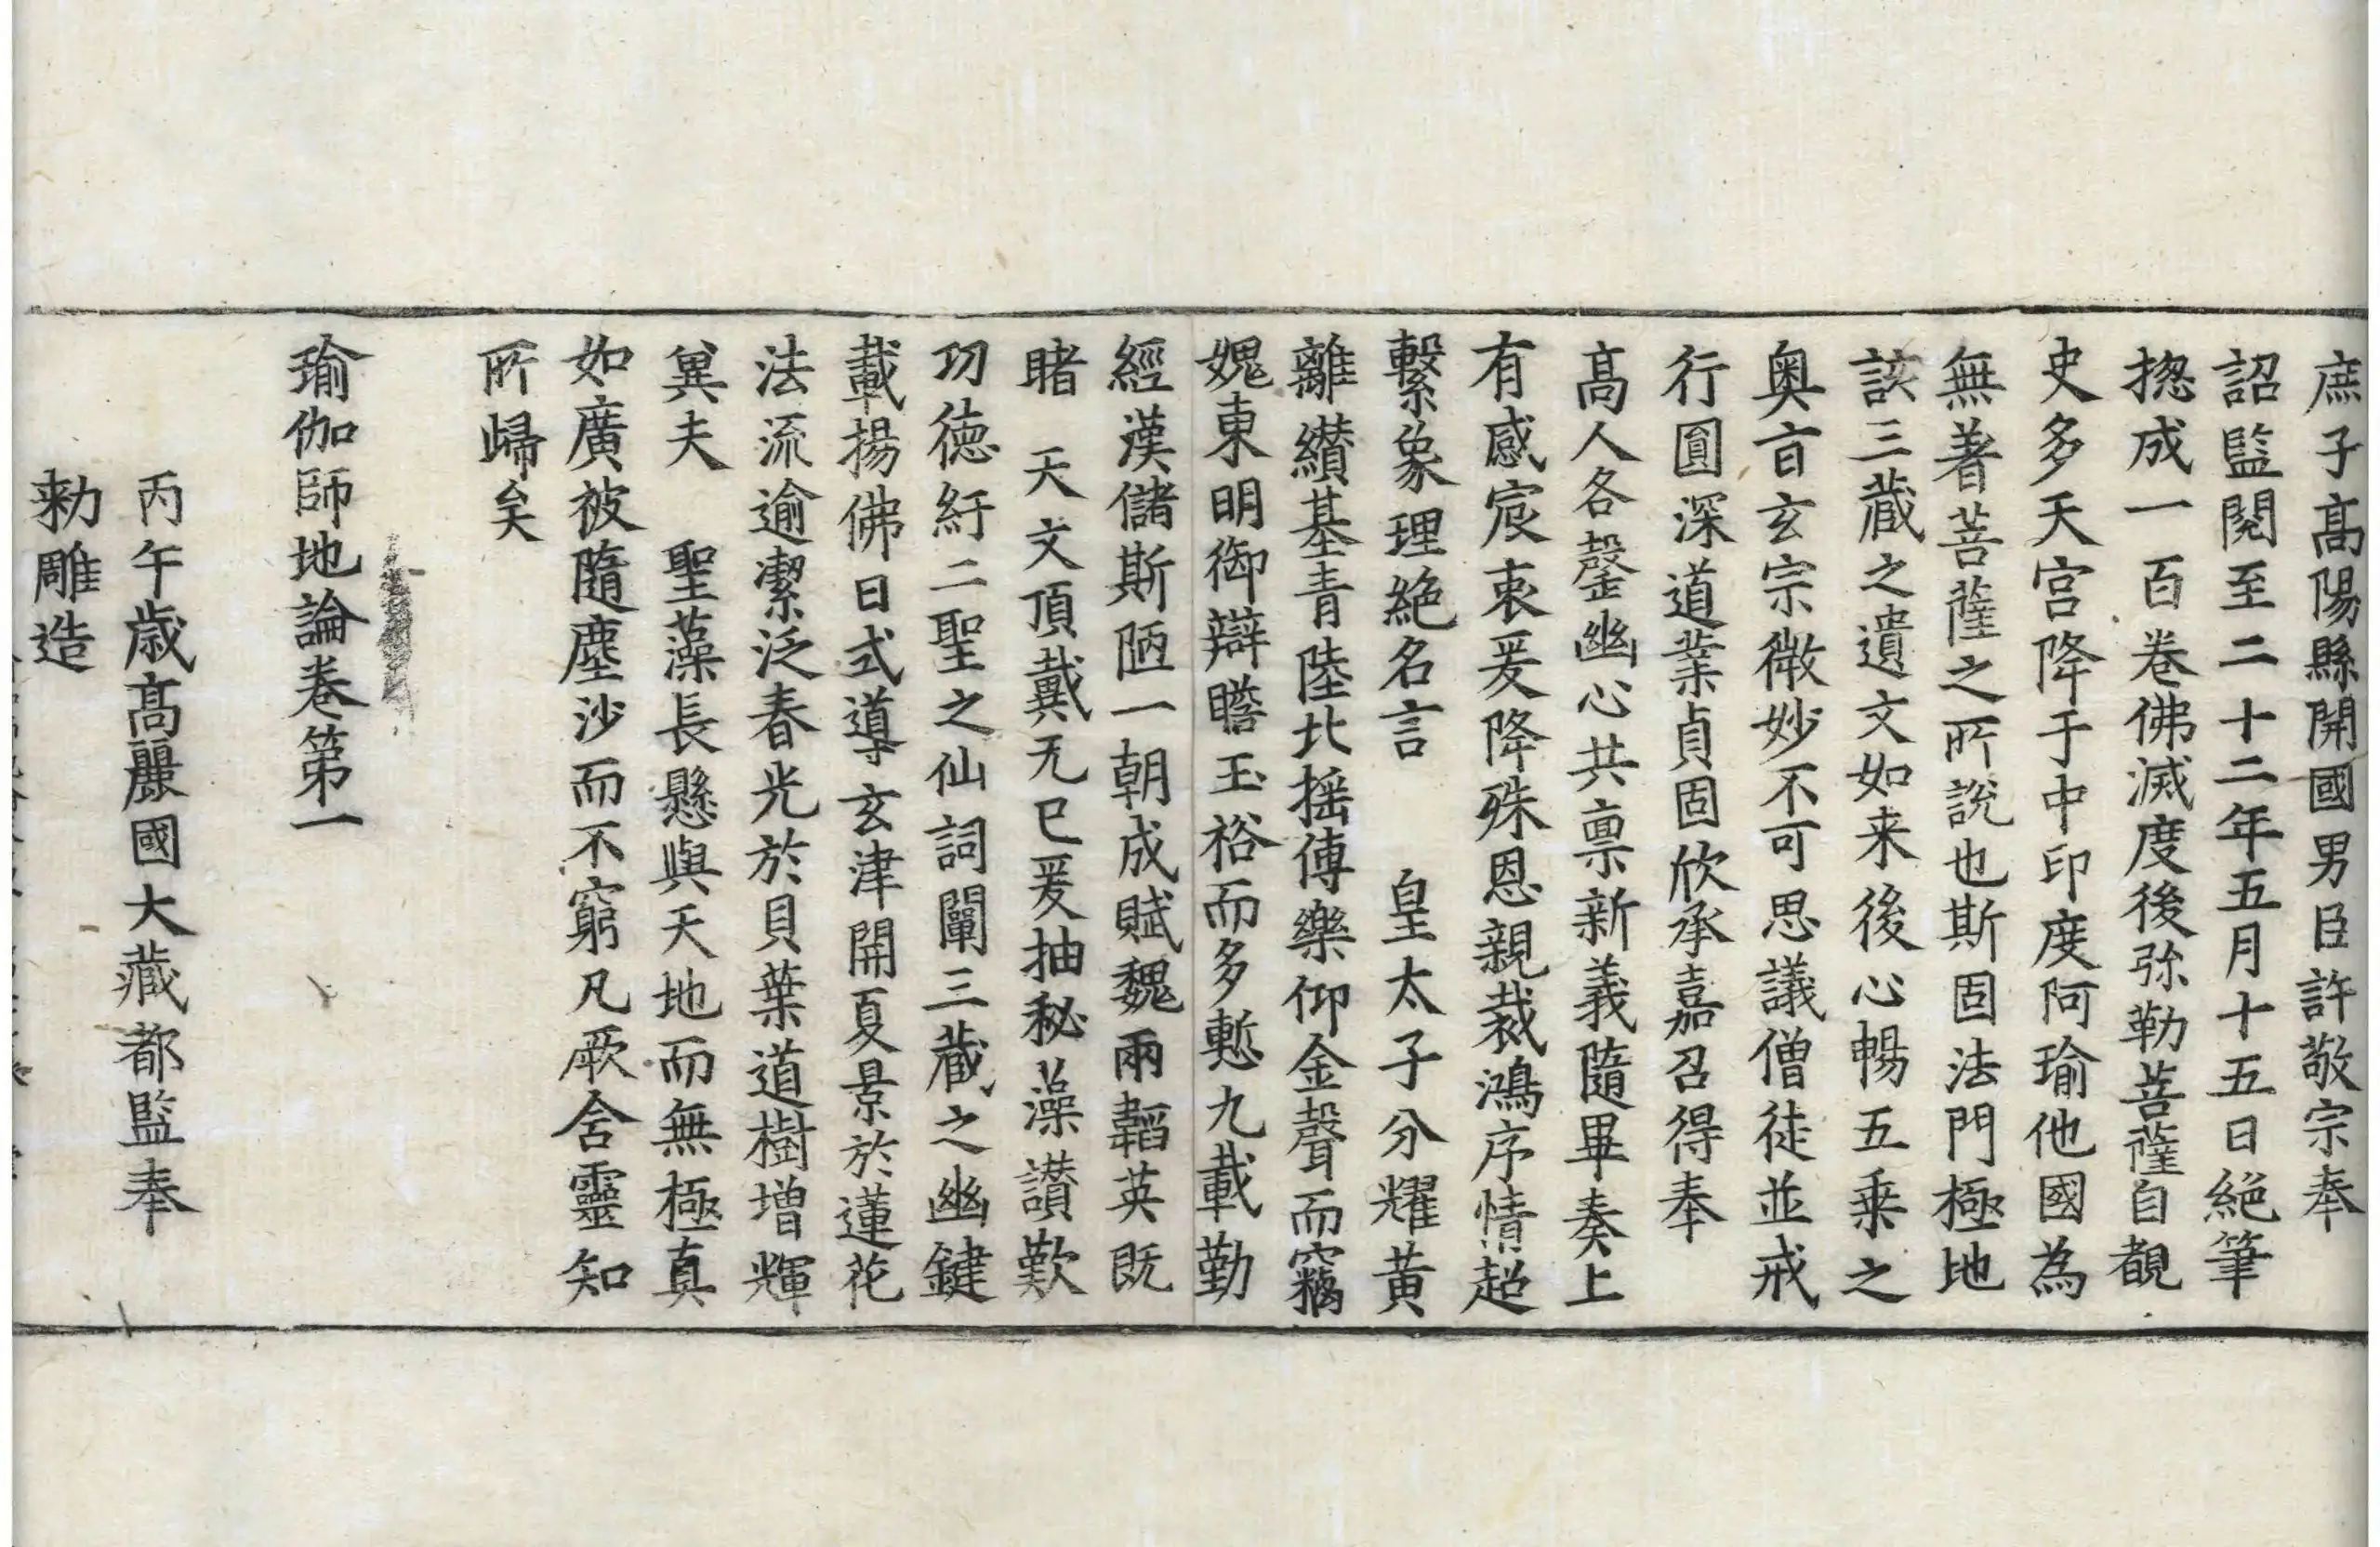 庶子高陽縣開國男臣許敬宗奉
詔監閱至二十二年五月十五日絶筆
揔成一百卷佛滅度後弥勒菩薩自覩
史多天宮降于中印度阿瑜他國為
無著菩薩之所說也斯固法門極地
該三藏之遺文如来後心暢五乗之
奥㫖玄宗微妙不可思議僧徒並戒
行圓深道業貞固欣承嘉召得奉
高人各罄幽心共禀新義隨畢奏上
有感宸衷爰降殊恩親裁鴻序情超
繫象理絶名言　皇太子分耀黃
離纘基青陸北摇傳樂仰金聲而竊
媿東明御辯瞻玉裕而多慙九載勤
經漢儲斯陋一朝成賦魏兩韜英既
睹　天文頂戴无已爰抽秘藻讃歎
功德紆二聖之仙詞闡三藏之幽鍵
載揚佛日式導玄津開夏景於蓮花
法流逾潔泛春光於貝葉道樹増輝
兾夫　聖藻長懸與天地而無極真
如廣被隨塵沙而不窮凡厥含靈知
所歸矣
瑜伽師地論卷第一
丙午歲高麗國大藏都監奉
勑雕造